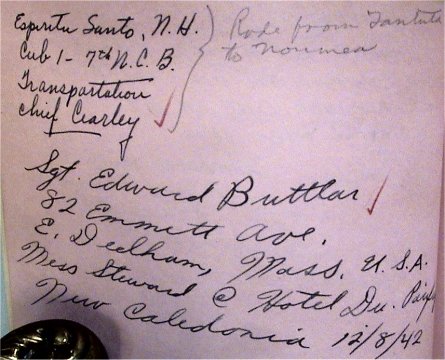 Espiritu Santo, N.H.
Cub 1 - 7th N.C.B.
Transportation
Chief Crarley
Rode from Tontuta
to Noumea
Sgt. Edward Buttlar
82 Emmett Ave.
E. Dedham, Mass. U.S.A.
Mess Steward @ Hotel Du.
New Caledonia 12/8/42